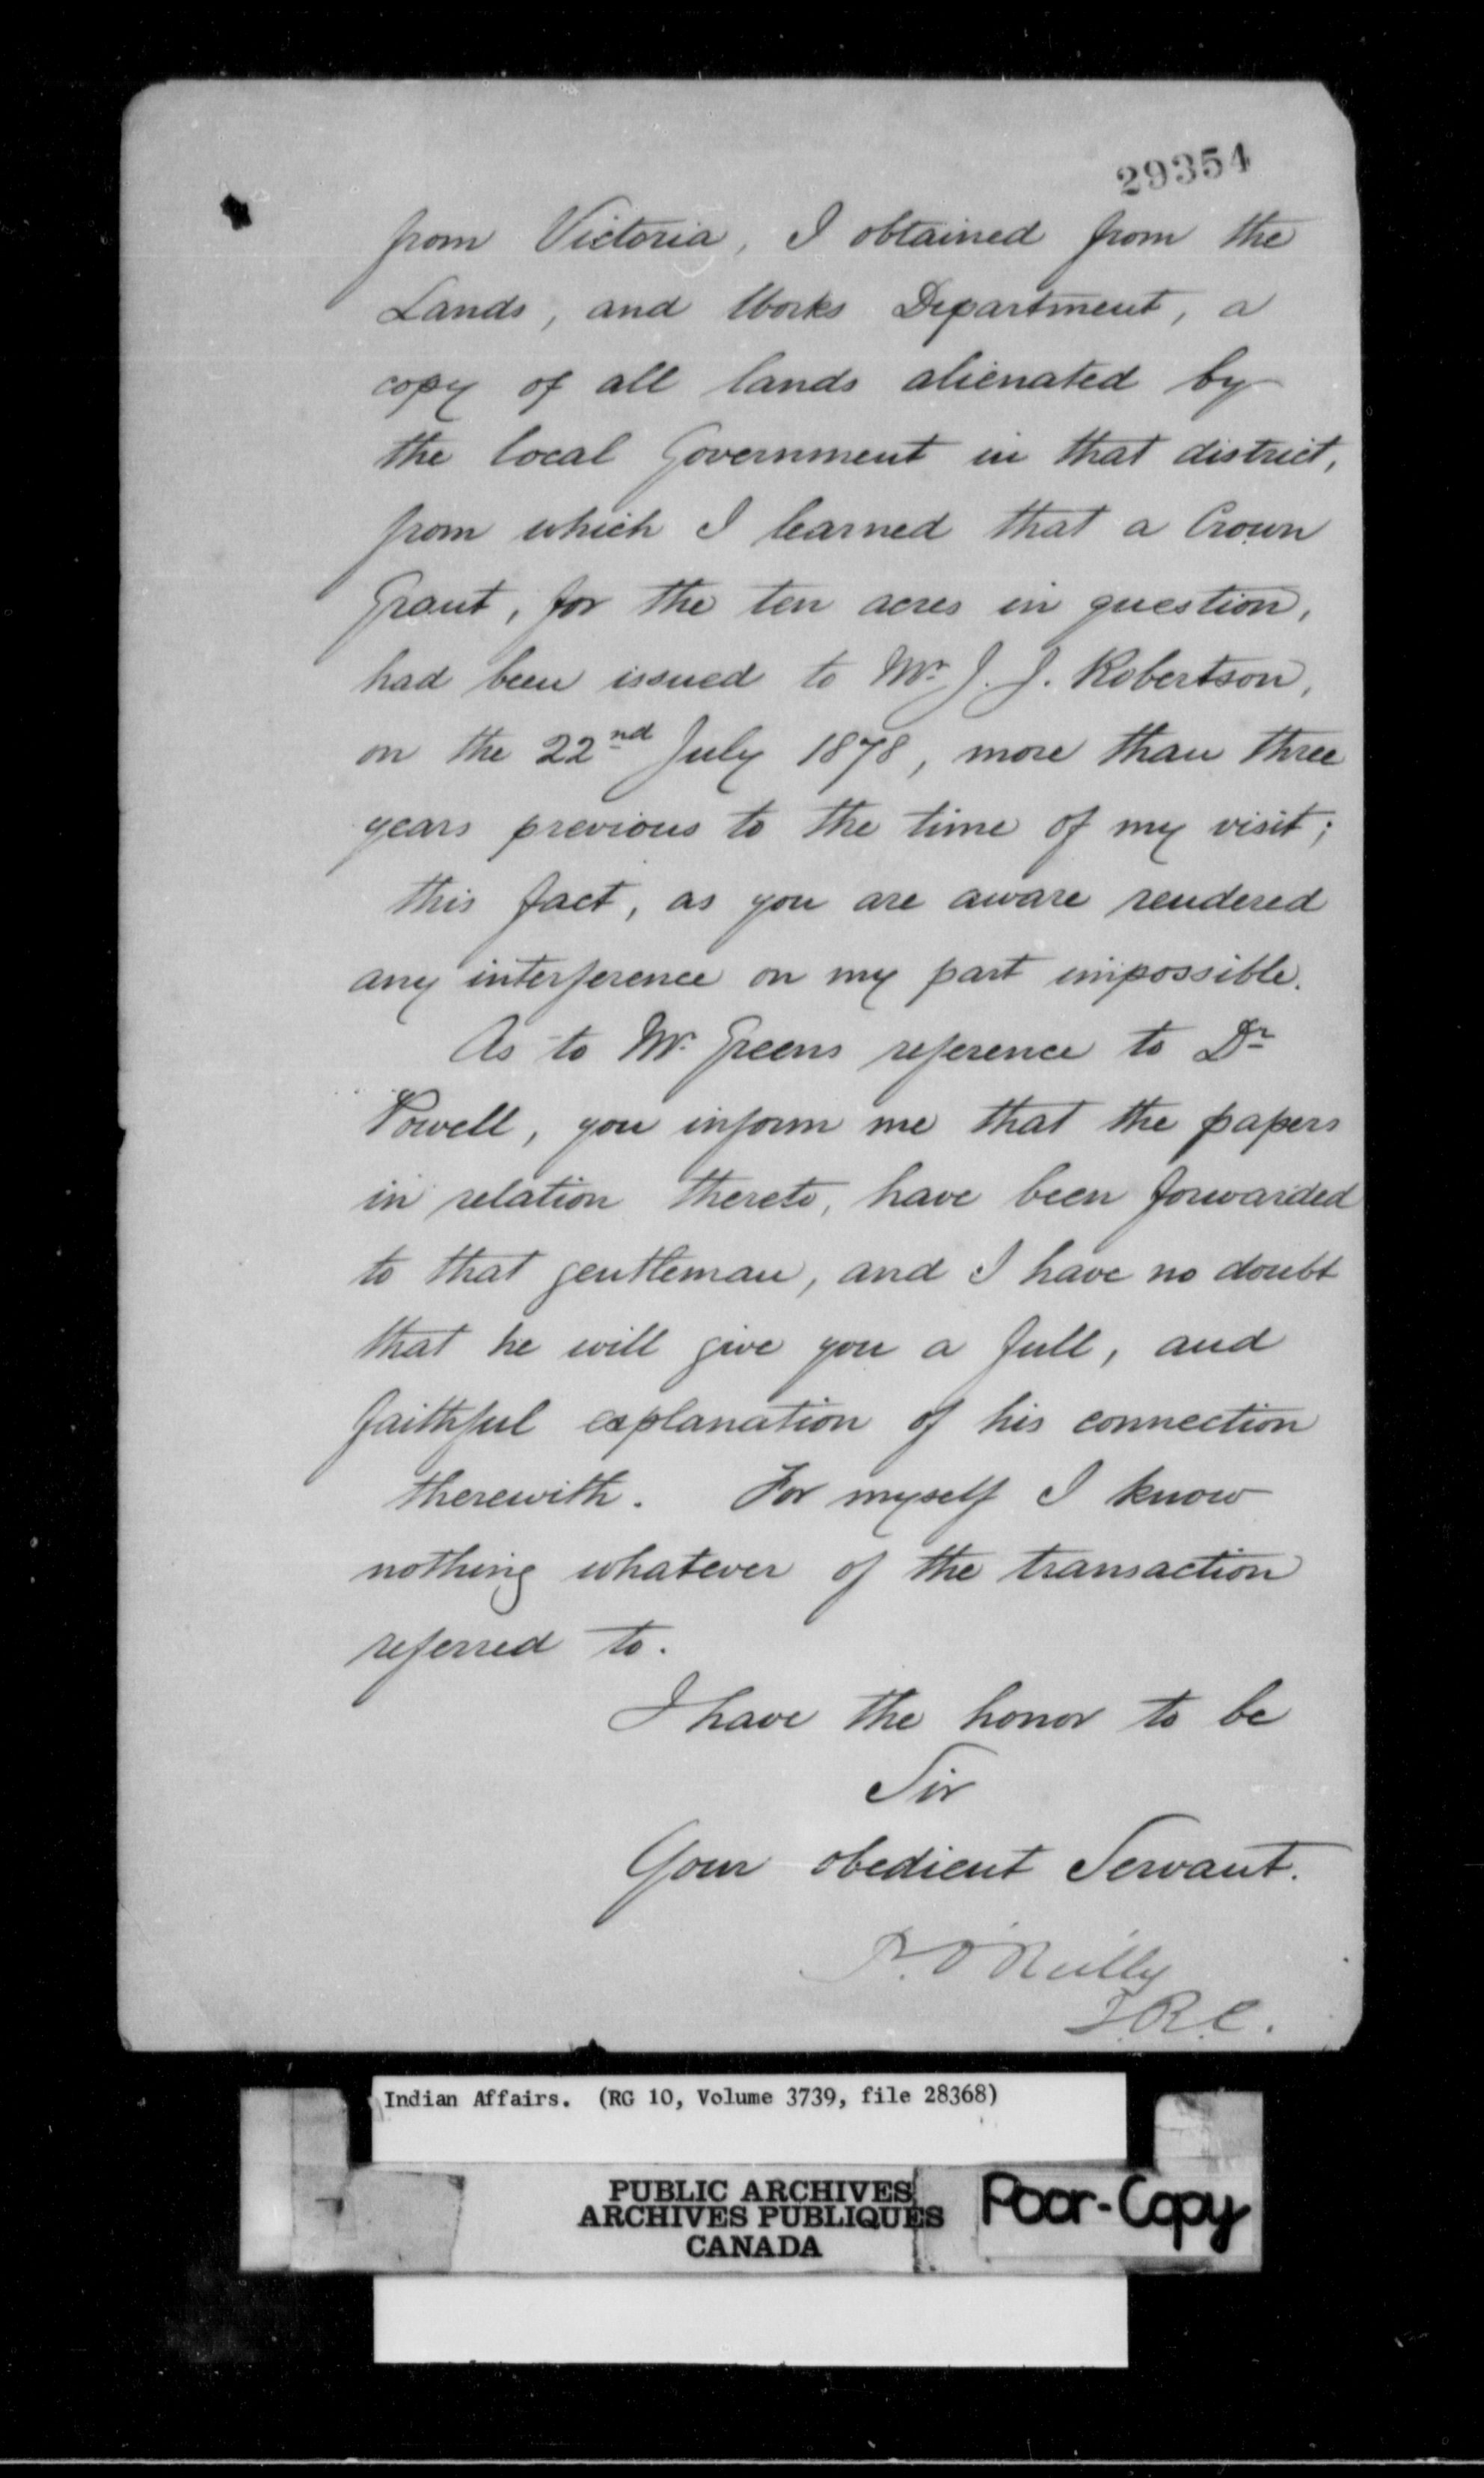 29354
from Victoria, I obtained from the
Lands, and Works Department, a
copy of all lands alienated by
the local Government in that district,
from which I learned that a Crown
Grant, for the ten acres in question,
had been issued to Mr. J. J. Robertson,
on the 22nd July 1878, more than three
years previous to the time of my visit;
this fact, as you are aware rendered
any interference on my part impossible.
As to Mr. Greens reference to Dr
Powell, you inform me that the papers
in relation thereto, have been forwarded
to that gentleman, and I have no doubt
that he will give you a full, and
faithful explanation of his connection
therewith. For myself I know
nothing whatever of the transaction
referred to.
I have the honor to be
Sir
Your obedient Servant.
P. O'Reilly
I.R.C.
Indian Affairs. (RG 10, Volume 3739, file 28368)
PUBLIC ARCHIVES
ARCHIVES PUBLIQUES
CANADA
Poor-Copy